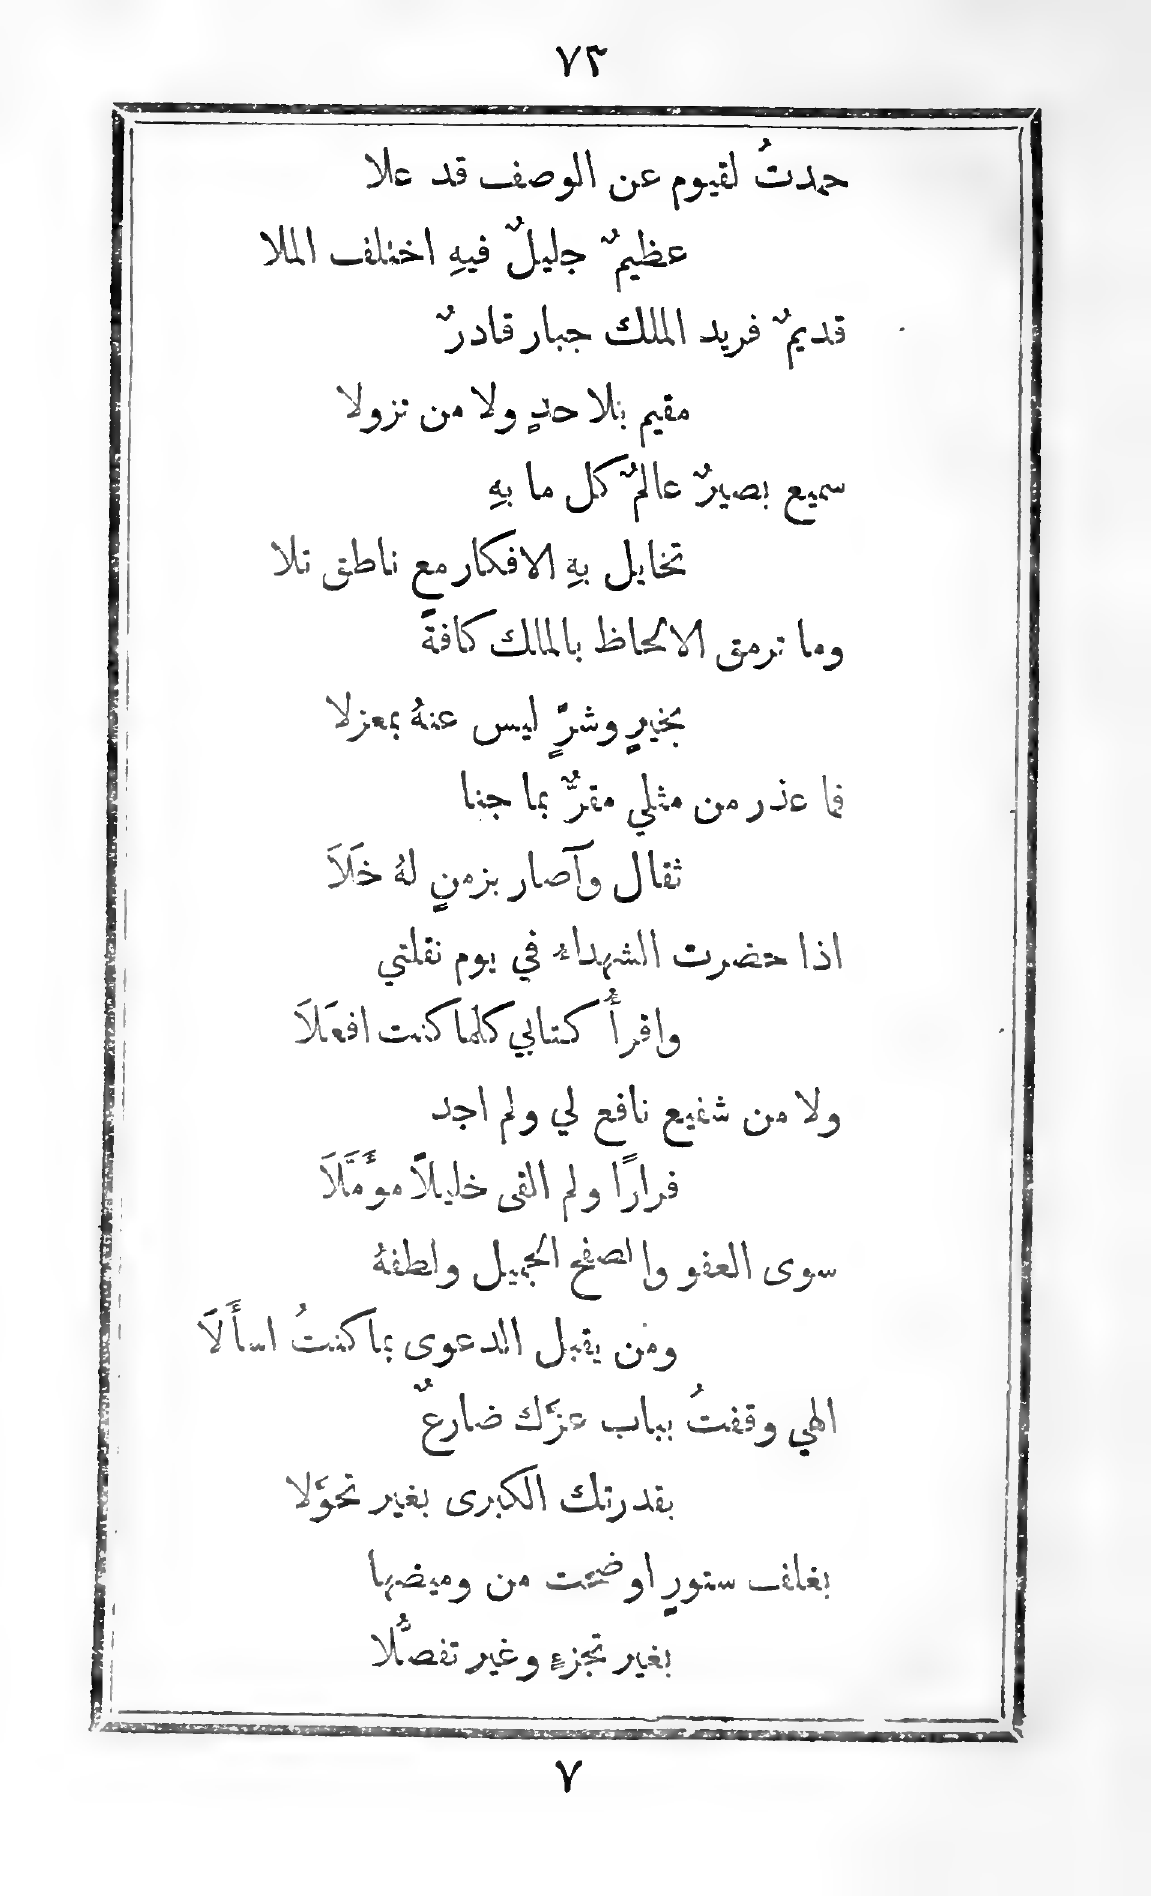 ٧٣
حمدتُ لقيوم عن الوصف قد علا
عظيمٌ جليلٌ فيهِ اختلف الملا
قديمٌ فريد الملك جبار قادرٌ
مقيم بلا حدٍ ولا من نزولا
سميع بصيرٌ عالمٌ كل ما بهِ
تخايل بهِ الافكار مع ناطق تلا
وما ترمق الالحاظ بالمالك كافةً
بخيرٍ وشرٍّ ليس عنهُ بمعزلا
فما عذر من مثلي مقرٌّ بما جنا
ثقال وآصار بزمنٍ لهُ خَلَاَ
اذا حضرت الشهداء في يوم نقلتي
وافرأُ كتابي كلما كنت افعَلَاَ
ولا من شفيع نافع لي ولم اجد
فرارًا ولم القى خليلاً مؤَمَّلَاَ
سوى العفو والصفح الجميل ولطفهُ
ومن يقبل الدعوى بما كنتُ اسأَلَاَ
الهي وقفتُ بباب عزَّك ضارعٌ
بقدرتك الكبرى بغير تحوَّلا
بغلف ستورٍ اوضحت من وميضها
بغير تجزءٍ وغير تفصُّلا
٧